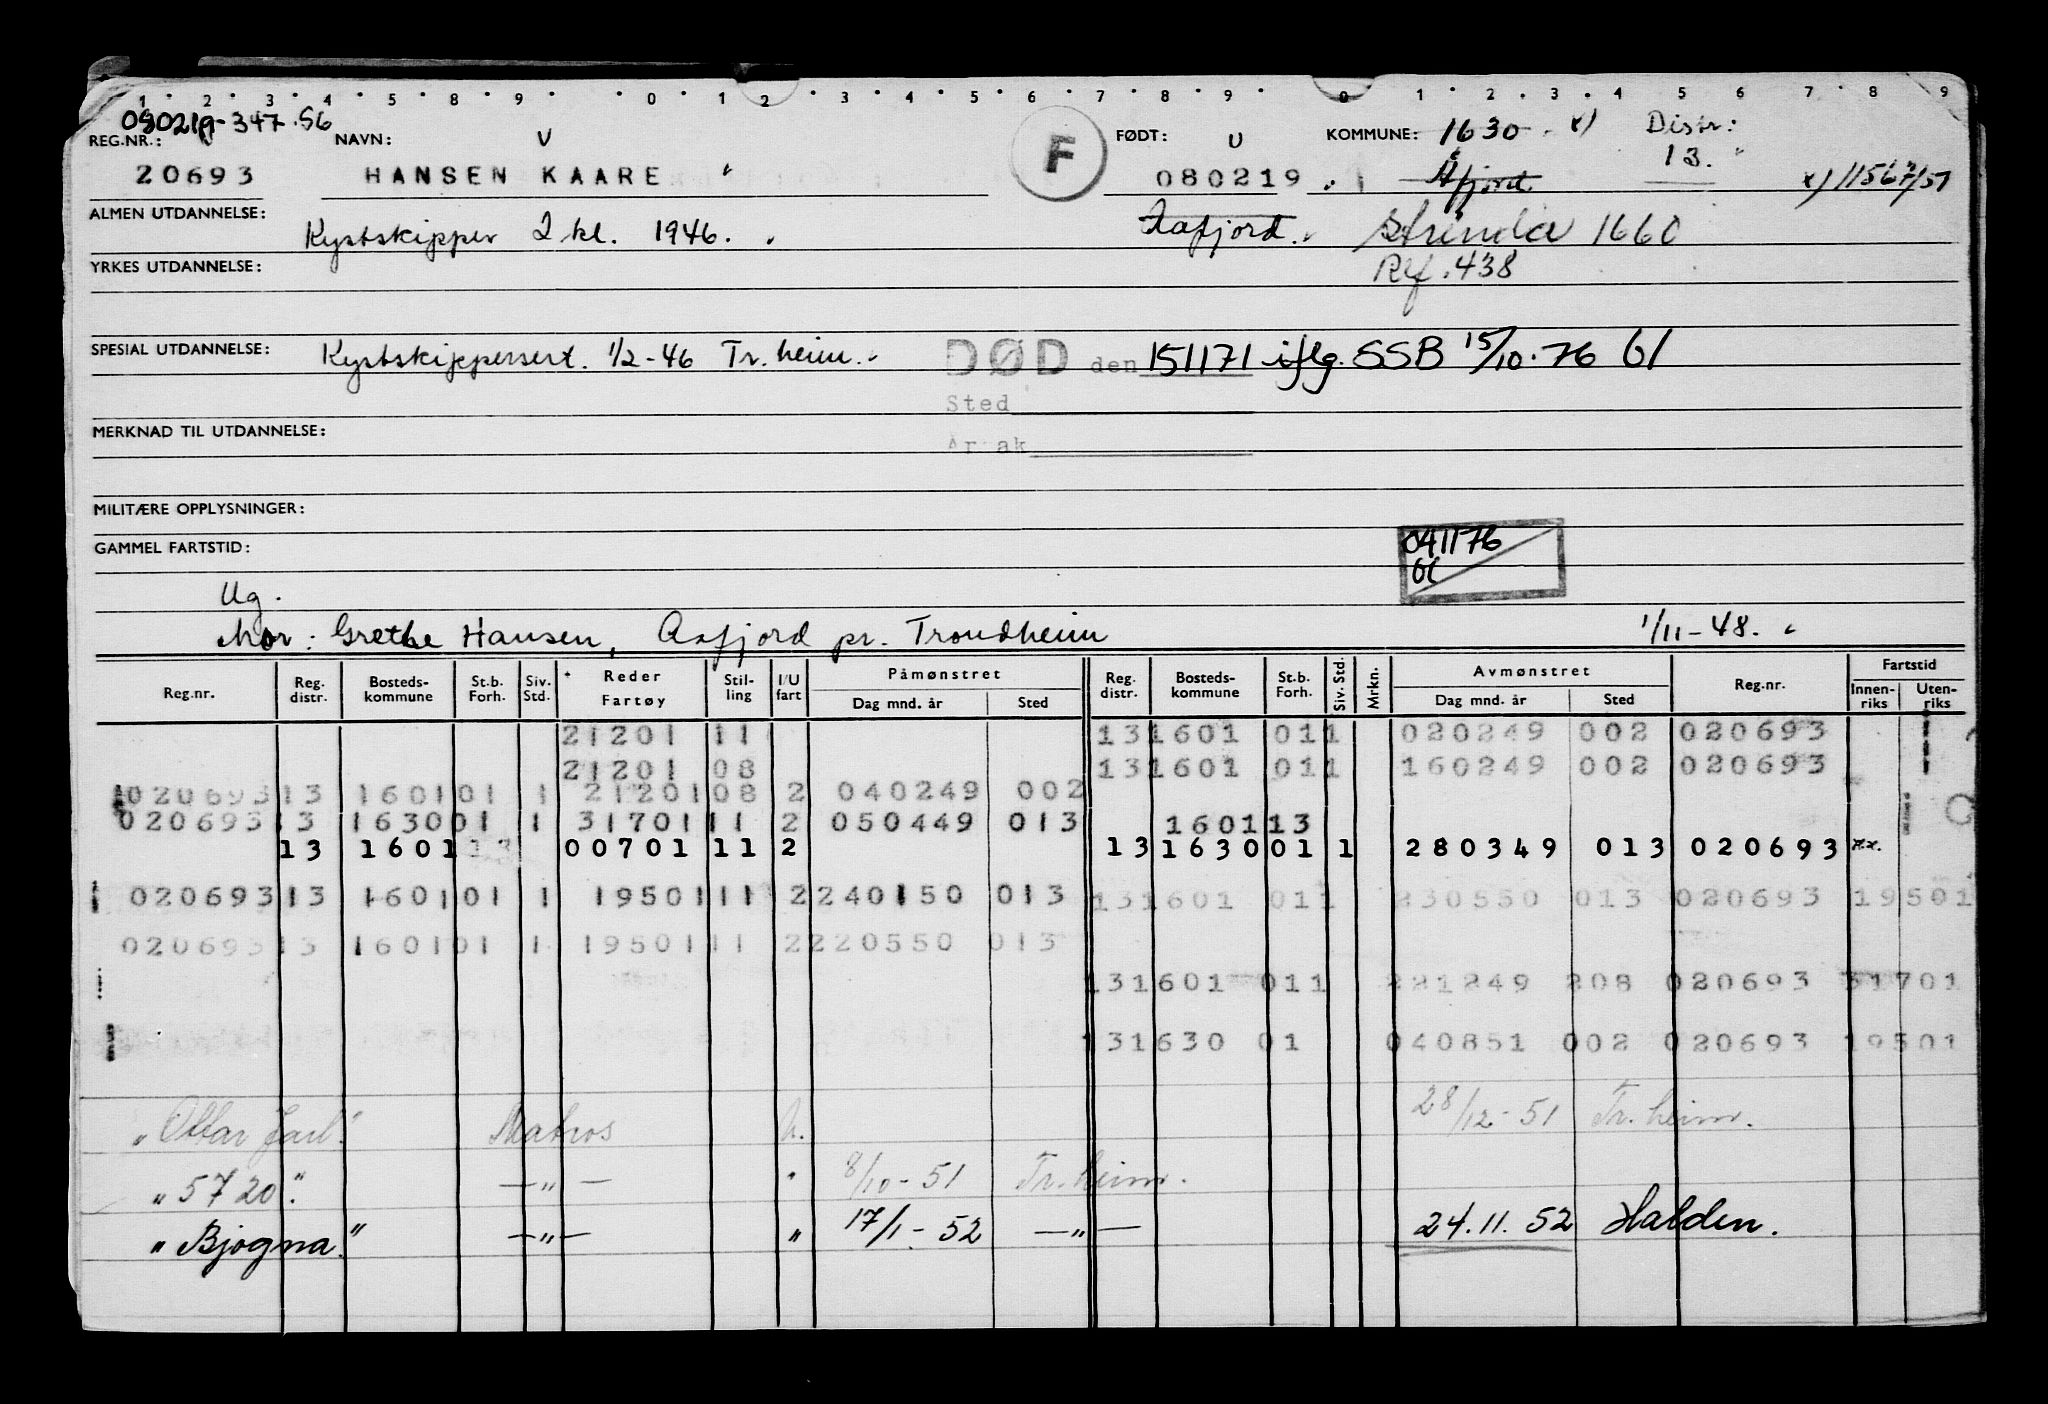 1 2 3 4 5 8 9 0 1 2 3 4 5 6 7 8 9 0 1 2 3 4 5 6 7 8 9
080219-347.56
REG.NR.: NAVN: V F FØDT: U KOMMUNE: 1630. x) Distr:
20693 HANSEN KAARE 080219 Åfjord 13. x) 11567/51
ALMEN UTDANNELSE: Kystskipper 2 kl. 1946. Aafjord. Strinda 1660
YRKES UTDANNELSE: Ref. 438
SPESIAL UTDANNELSE: Kystskippersert. 1/2-46 Tr.heim. DØD den 151171 iflg. SSB 15/10.76
Sted
MERKNAD TIL UTDANNELSE: Årsak
MILITÆRE OPPLYSNINGER:
GAMMEL FARTSTID: 041176
Ug.
Mor: Grethe Hansen, Aafjord pr. Trondheim 1/11-48.
Reg.nr. Reg. distr. Bosteds-kommune St.b. Forh. Siv. Std. Reder Fartøy Stil-ling I/U fart Påmønstret Dag mnd. år Sted Reg. distr. Bosteds-kommune St.b. Forh. Siv. Std. Mrkn. Avmønstret Dag mnd. år Sted Reg.nr. Fartstid Innen-riks Uten-riks
21201 11 131601 011 020249 002 020693
21201 08 131601 011 160249 002 020693
020693 13 1601 01 1 21201 08 2 040249 002
020693 13 1630 01 1 31701 11 2 050449 013 160113
13 1601 13 00701 11 2 13 1630 01 1 280349 013 020693 xx.
020693 13 1601 01 1 19501 11 2 240150 013 131601 011 230550 013 020693 19501
020693 13 1601 01 1 19501 11 2 220550 013
131601 011 221249 208 020693 31701
131630 01 040851 002 020693 19501
"Ottar Jarl". Matros U. 28/12-51 Tr.heim.
"5720". —"— " 8/10-51 Tr.heim.
"Bjogna." —"— " 17/1-52 —"— 24.11.52 Halden.